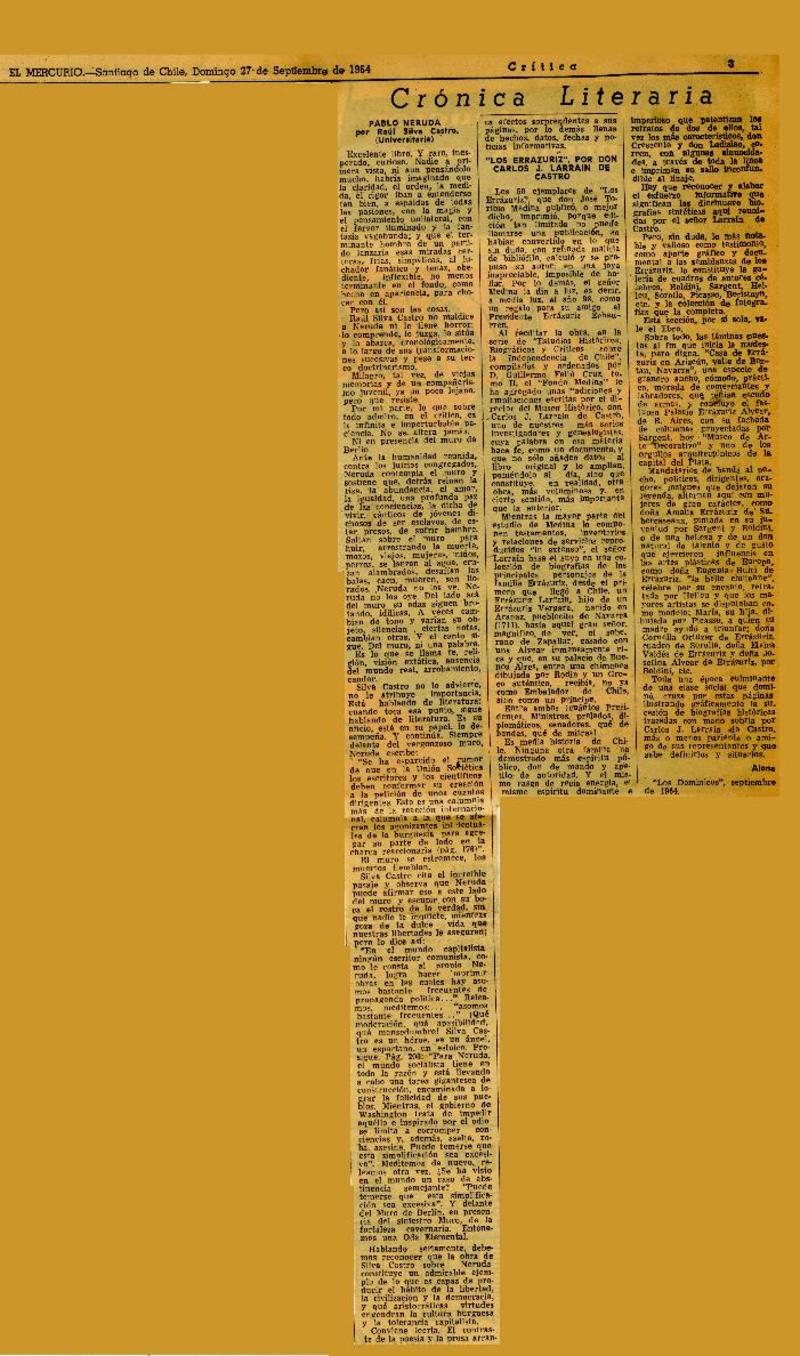 EL MERCURIO.—Santiago de Chile, Domingo 27 de Septiembre de 1964
Crítica
3
Crónica Literaria
PABLO NERUDA
por Raúl Silva Castro.
(Universitaria)
Excelente libro. Y raro, ines-
perado, curioso. Nadie a pri-
mera vista, ni aun pensándolo
mucho, habría imaginado que
la claridad, el orden, la medi-
da, el rigor iban a entenderse
tan bien, a espaldas de todas
las pasiones, con la magia y
el pensamiento unilateral, con
el fervor iluminado y la fan-
tasía vagabunda; y que el ter-
minante hombre de un parti-
do lanzaría esas miradas cer-
teras, frías, simpáticas, al lu-
chador fanático y tenaz, obe-
diente, inflexible, no menos
terminante en el fondo, como
hecho en apariencia, para cho-
car con él.
Pero así son las cosas.
Raúl Silva Castro no maldice
a Neruda ni le tiene horror:
lo comprende, lo juzga, lo sitúa
y lo abarca, cronológicamente,
a lo largo de sus transformacio-
nes sucesivas y pese a su ter-
co doctrinarismo.
Milagro, tal vez, de viejas
memorias y de un compañeris-
mo juvenil, ya un poco lejano,
pero que resiste.
Por mi parte, lo que sobre
todo admiro, en el crítico, es
la infinita e imperturbable pa-
ciencia. No se altera jamás.
Ni en presencia del muro de
Berlín
Ante la humanidad reunida,
contra los juicios congregados,
Neruda contempla el muro y
sostiene que, detrás reinan la
risa, la abundancia, el amor,
la igualdad, una profunda paz
de las conciencias, la dicha de
vivir, cánticos de jóvenes di-
chosos de ser esclavos, de es-
tar presos, de sufrir hambre.
Saltan sobre el muro para
huir, arrostrando la muerte,
mozos, viejos, mujeres, niños,
perros, se lanzan al agua, cru-
zan alambrados, desafían las
balas, caen, mueren, son llo-
rados. Neruda no los ve. Ne-
ruda no los oye. Del lado acá
del muro, su odas siguen bro-
tando, idílicas. A veces cam-
bian de tono y varían su ob-
jeto, silencian ciertas notas,
cambian otras. Y el canto si-
gue. Del muro, ni una palabra.
Es lo que se llama fe, reli-
gión, visión extática, ausencia
del mundo real, arrobamiento,
candor.
Silva Castro no lo advierte,
no le atribuye importancia.
Está hablando de literatura:
cuando toca esa punto, sigue
hablando de literatura. Es su
oficio, está en su papel, lo de-
sempeña. Y continúa. Siempre
delante del vergonzoso muro,
Neruda escribe:
"Se ha esparcido el rumor
de que en la Unión Soviética
los escritores y los científicos
deben conformar su creación
a la petición de unos cuantos
dirigentes. Esto es una calumnia
más de la reacción internacio-
nal, calumnia a la que se afe-
rran los agonizantes intelectua-
les de la burguesía para agre-
gar su parte de lodo en la
charca reaccionaria (pág. 176)".
El muro se estremece, los
muertos tiemblan.
Silva Castro cita el increíble
pasaje y observa que Neruda
puede afirmar eso a este lado
del muro y escupir con su bo-
ca el rostro de la verdad, sin
que nadie lo inquiete, mientras
goza de la dulce vida que
nuestras libertades le aseguran;
pero lo dice así:
"En el mundo capitalista
ningún escritor comunista, co-
mo le consta al propio Ne-
ruda, logra hacer imprimir
obras en las cuales hay aso-
mos bastante frecuentes de
propaganda política..." Relea-
mos, meditemos:.. "asomos
bastante frecuentes .." ¡Qué
moderación, qué apacibilidad,
qué mansedumbre! Silva Cas-
tro es un héroe, es un ángel,
un espartano, un estoico. Pro-
sigue. Pág. 208: "Para Neruda,
el mundo socialista tiene en
todo la razón y está llevando
a cabo una tarea gigantesca de
construcción, encaminada a lo-
grar la felicidad de sus pue-
blos. Mientras, el gobierno de
Washington trata de impedir
aquello e inspirado por el odio
se limita a corromper con-
ciencias y, además, asalta, ro-
ba, asesina. Puede temerse que
esta simplificación sea excesi-
va". Meditemos de nuevo, re-
leamos otra vez. ¿Se ha visto
en el mundo un caso de abs-
tinencia semejante? "Puede
temerse que esta simplifica-
ción sea excesiva". Y delante
del Muro de Berlín, en presen-
cia del siniestro Muro, de la
fortaleza cavernaria. Entone-
mos una Oda Elemental.
Hablando seriamente, debe-
mos reconocer que la obra de
Silva Castro sobre Neruda
constituye un admirable ejem-
plo de lo que es capaz de pro-
ducir el hábito de la libertad,
la civilización y la democracia,
y qué aristocráticas virtudes
engendran la cultura burguesa
y la tolerancia capitalista.
Conviene leerla. El contras-
te de la poesía y la prosa arran-
ca efectos sorprendentes a sus
páginas, por lo demás llenas
de hechos, datos, fechas y no-
ticias informativas.
"LOS ERRAZURIZ", POR DON
CARLOS J. LARRAIN DE
CASTRO
Los 50 ejemplares de "Los
Errázuriz", que don José To-
ribio Medina publicó, o mejor
dicho, imprimió, porque edi-
ción tan limitada no puede
llamarse una publicación, se
habían convertido en lo que
sin duda, con refinada malicia
de bibliófilo, calculó y se pro-
puso su autor: en una joya
inapreciable, imposible de ha-
llar. Por lo demás, el señor
Medina la dio a luz, es decir,
a media luz, el año 98, como
un regalo para su amigo el
Presidente Errázuriz Echau-
rren.
Al reeditar la obra, en la
serie de "Estudios Históricos,
Biográficos y Críticos sobre
la Independencia de Chile",
compilados y ordenados por
D. Guillermo Feliú Cruz, to-
mo II, el "Fondo Medina" le
ha agregado unas "adiciones y
ampliaciones escritas por el di-
rector del Museo Histórico, don
Carlos J. Larraín de Castro,
uno de nuestros más serios
investigadores y genealogistas,
cuya palabra en esa materia
hace fe, como un documento, y
que no sólo añaden datos al
libro original y lo amplían,
poniéndolo al día, sino que
constituye, en realidad, otra
obra, más voluminosa y, en
cierto sentido, más importante
que la anterior.
Mientras la mayor parte del
estudio de Medina lo compo-
nen testamentos, inventarios
y relaciones de servicios repro-
ducidos "in extenso", el señor
Larraín basa el suyo en una co-
lección de biografías de los
principales personajes de la
familia Errázuriz, desde el pri-
mero que llegó a Chile, un
Errázuriz Larraín, hijo de un
Errázuriz Vergara, nacido en
Aranaz, pueblecito de Navarra
(1711), hasta aquel gran señor,
magnífico, de ver, el sobe-
rano de Zapallar, casado con
una Alvear inmensamente ri-
ca y que, en su palacio de Bue-
nos Aires, entre una chimenea
dibujada por Rodin y un Gre-
co auténtico, recibía, no ya
como Embajador de Chile,
sino como un príncipe.
Entre ambos ¡cuántos Presi-
dentes, Ministros, prelados, di-
plomáticos, senadores, qué de
bandas, qué de mitras!
Es media historia de Chi-
le. Ninguna otra familia ha
demostrado más espíritu pú-
blico, don de mando y ape-
tito de autoridad. Y el mis-
mo rasgo de recia energía, el
mismo espíritu dominante e
imperioso que patentizan los
retratos de dos de ellos, tal
vez los más característicos, don
Crescente y don Ladislao, co-
rren, con algunas sinuosida-
des, a través de toda la línea
e imprimen su sello inconfun-
dible al linaje.
Hay que reconocer y alabar
el esfuerzo informativo que
significan las diecinueve bio-
grafías sintéticas aquí reuni-
das por el señor Larraín de
Castro.
Pero, sin duda, lo más nota-
ble y valioso como testimonio,
como aporte gráfico y docu-
mental a las semblanzas de los
Errázuriz, lo constituye la ga-
lería de cuadros de autores cé-
lebres, Boldini, Sargent, Hel-
leu, Sorolla, Picasso, Beristayn,
etc. y la colección de fotogra-
fías que la completa.
Esta sección, por sí sola, va-
le el libro.
Sobre todo, las láminas pues-
tas al fin que inicia la modes-
ta, pero digna, "Casa de Errá-
zuriz en Arizcún, valle de Baz-
tan, Navarra", una especie de
granero ancho, cómodo, prácti-
co, morada de comerciantes y
labradores, que tenían escudo
de armas, y concluye el fas-
tuoso Palacio Errázuriz Alvear,
de B. Aires, con su fachada
de columnas proyectadas por
Sargent, hoy "Museo de Ar-
te Decorativo" y uno de los
orgullos arquitectónicos de la
capital del Plata.
Mandatarios de banda al pe-
cho, políticos, dirigentes, ora-
dores insignes que dejaron su
leyenda, alternan aquí con mu-
jeres de gran carácter, como
doña Amalia Errázuriz de Su-
bercaseaux, pintada en su ju-
ventud por Sargent y Boldini,
o de una belleza y de un don
natural de talento y de gusto
que ejercieron influencia en
las artes plásticas de Europa,
como doña Eugenia Huici de
Errázuriz, "la belle chilienne",
célebre por su encanto, retra-
tada por Helleu y que los ma-
yores artistas se disputaban co-
mo modelo; María, su hija, di-
bujada por Picasso, a quien su
madre ayudó a triunfar; doña
Cornelia Ortúzar de Errázuriz,
cuadro de Sorolla, doña Elena
Valdés de Errázuriz y doña Jo-
sefina Alvear de Errázuriz, por
Boldini, etc.
Toda una época culminante
de una clase social que domi-
nó, cruza por estas páginas
ilustrando gráficamente la su-
cesión de biografías históricas
trazadas con mano sobria por
Carlos J. Larraín de Castro,
más o menos pariente o ami-
go de sus representantes y que
sabe definirlos y situarlos.
Alone
"Los Dominicos", septiembre
de 1964.